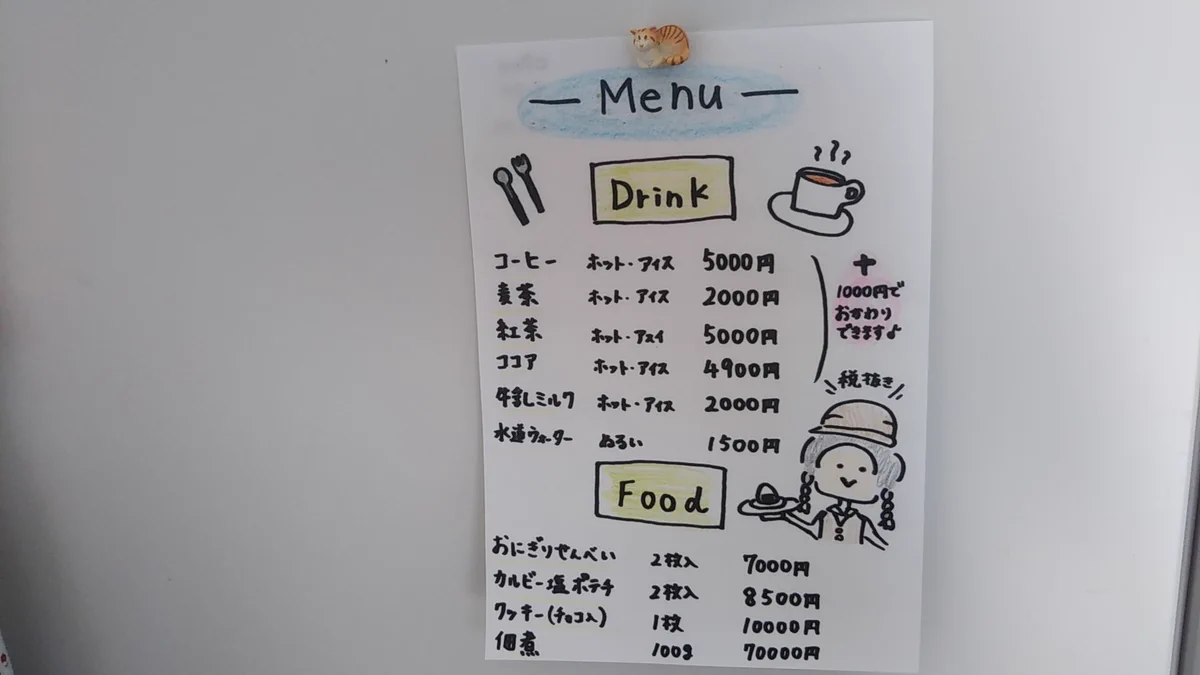 — Menu —
Drink
コーヒー ホット・アイス 5000円
麦茶 ホット・アイス 2000円
紅茶 ホット・アスイ 5000円
ココア ホット・アイス 4900円
牛乳ミルク ホット・アイス 2000円
水道ウォーター ぬるい 1500円
+
1000円で
おかわり
できます♪
税抜き
Food
おにぎりせんべい 2枚入 7000円
カルビー塩ポテチ 2枚入 8500円
クッキー(チョコ入) 1枚 10000円
佃煮 100g 70000円